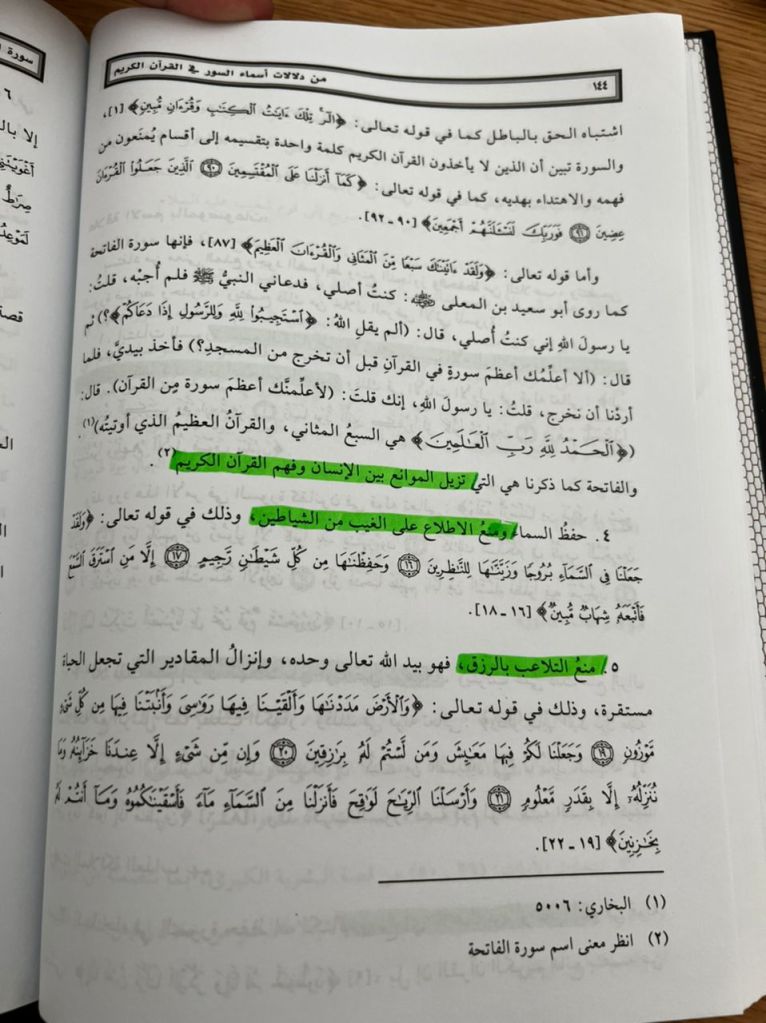 ١٤٤
من دلالات أسماء السور في القرآن الكريم
اشتباه الحق بالباطل كما في قوله تعالى: ﴿الٓرۚ تِلْكَ ءَايَٰتُ ٱلْكِتَٰبِ وَقُرْءَانٍ مُّبِينٍ﴾ [١]،
والسورة تبين أن الذين لا يأخذون القرآن الكريم كلمة واحدة بتقسيمه إلى أقسام يُمنَعون من
فهمه والاهتداء بهديه، كما في قوله تعالى: ﴿كَمَآ أَنزَلْنَا عَلَى ٱلْمُقْتَسِمِينَ ۝٩٠ ٱلَّذِينَ جَعَلُوا۟ ٱلْقُرْءَانَ
عِضِينَ ۝٩١ فَوَرَبِّكَ لَنَسْـَٔلَنَّهُمْ أَجْمَعِينَ﴾ [٩٠ـ٩٢].
وأما قوله تعالى: ﴿وَلَقَدْ ءَاتَيْنَٰكَ سَبْعًا مِّنَ ٱلْمَثَانِى وَٱلْقُرْءَانَ ٱلْعَظِيمَ﴾ [٨٧]، فإنها سورة الفاتحة
كما روى أبو سعيد بن المعلى رضي الله عنه: كنتُ أصلي، فدعاني النبيُّ ﷺ فلم أُجبْه، قلتُ:
يا رسولَ اللهِ إني كنتُ أُصلي، قال: (ألم يقلِ اللهُ: ﴿ٱسْتَجِيبُوا۟ لِلَّهِ وَلِلرَّسُولِ إِذَا دَعَاكُمْ﴾؟) ثم
قال: (ألا أعلِّمُك أعظمَ سورةٍ في القرآنِ قبل أن تخرج من المسجدِ؟) فأخذ بيديَّ، فلما
أردْنا أن نخرج، قلتُ: يا رسولَ اللهِ، إنك قلتَ: (لأعلِّمنَّك أعظمَ سورة مِن القرآن). قال:
(﴿ٱلْحَمْدُ لِلَّهِ رَبِّ ٱلْعَٰلَمِينَ﴾ هي السبعُ المثاني، والقرآنُ العظيمُ الذي أوتيتُه)(١).
والفاتحة كما ذكرنا هي التي تزيل الموانع بين الإنسان وفهم القرآن الكريم(٢).
٤. حفظُ السماء ومنعُ الاطلاع على الغيب من الشياطين، وذلك في قوله تعالى: ﴿وَلَقَدْ
جَعَلْنَا فِى ٱلسَّمَآءِ بُرُوجًا وَزَيَّنَّٰهَا لِلنَّٰظِرِينَ ۝١٦ وَحَفِظْنَٰهَا مِن كُلِّ شَيْطَٰنٍ رَّجِيمٍ ۝١٧ إِلَّا مَنِ ٱسْتَرَقَ ٱلسَّمْعَ
فَأَتْبَعَهُۥ شِهَابٌ مُّبِينٌ﴾ [١٦ـ١٨].
٥. منعُ التلاعب بالرزق، فهو بيد الله تعالى وحده، وإنزالُ المقادير التي تجعل الحياة
مستقرة، وذلك في قوله تعالى: ﴿وَٱلْأَرْضَ مَدَدْنَٰهَا وَأَلْقَيْنَا فِيهَا رَوَٰسِىَ وَأَنۢبَتْنَا فِيهَا مِن كُلِّ شَىْءٍ
مَّوْزُونٍ ۝١٩ وَجَعَلْنَا لَكُمْ فِيهَا مَعَٰيِشَ وَمَن لَّسْتُمْ لَهُۥ بِرَٰزِقِينَ ۝٢٠ وَإِن مِّن شَىْءٍ إِلَّا عِندَنَا خَزَآئِنُهُۥ وَمَا
نُنَزِّلُهُۥٓ إِلَّا بِقَدَرٍ مَّعْلُومٍ ۝٢١ وَأَرْسَلْنَا ٱلرِّيَٰحَ لَوَٰقِحَ فَأَنزَلْنَا مِنَ ٱلسَّمَآءِ مَآءً فَأَسْقَيْنَٰكُمُوهُ وَمَآ أَنتُمْ لَهُۥ
بِخَٰزِنِينَ﴾ [١٩ـ٢٢].
(١) البخاري: ٥٠٠٦
(٢) انظر معنى اسم سورة الفاتحة